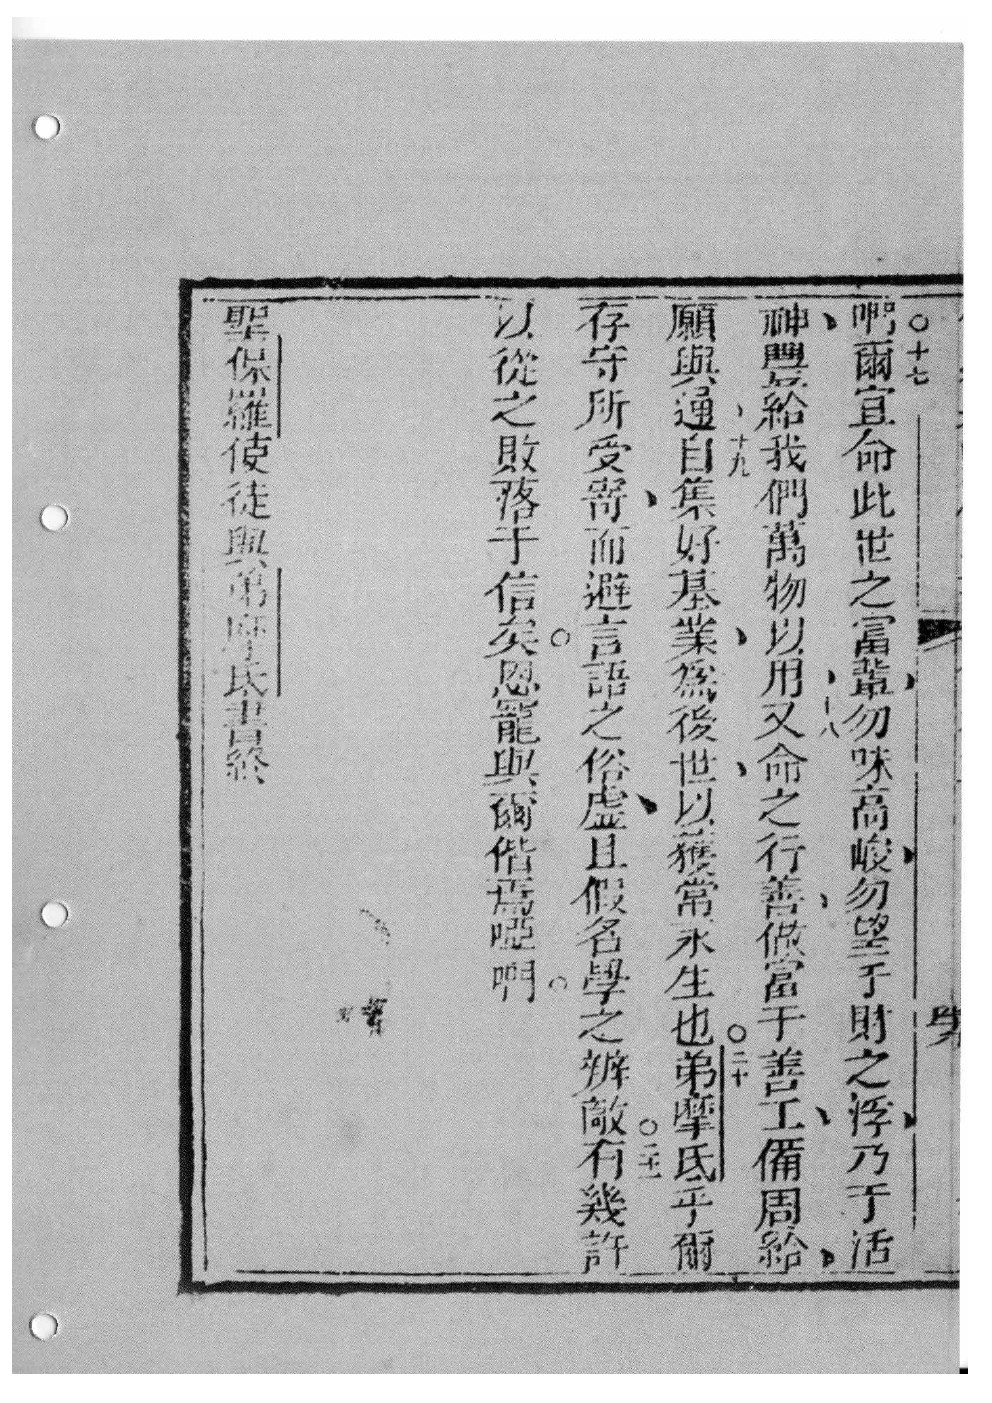 啊爾宜命此世之富輩勿味高峻勿望于財之浮乃于活
〇十七
神豐給我們萬物以用又命之行善做富于善工備周給
十八
願與通自集好基業為後世以獲常永生也弟摩氐乎爾
十九
〇二十
存守所受寄而避言語之俗虛且假名學之辦敵有幾許
〇二十一
以從之敗落于信矣〇恩寵與爾偕焉啞啊〇
聖保羅使徒與弟摩氐書終